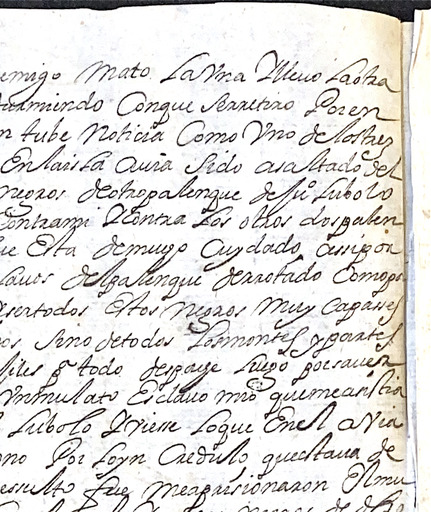 emigo Mato. La Vna Yllevo Laotra
durmiendo Conque Serretiro Poren
n tube Noticia Como Vno de Lostres
En laisla avia Sido asaltado del
negros deotropalenque de Ju Lubolo
Contrami YContra Los otros dospalen
ue Esta demuygo Cuydado assipor
delpalenque derrotado Comopo
sertodos Estos Negros Muy Capasses
os Sino detodos Losmontes ypartes
files q todo despaje Luego poesaver
Vnmulato Esclavo mio quemeasistia
l Lubolo Yviese Loque Enel avia
ono Por Loyn Credulo questava de
essulto fue meaprisionaron Elmu